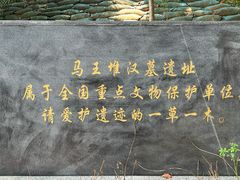 马王堆汉墓遗址
属于全国重点文物保护单位.
请爱护遗迹的一草一木。